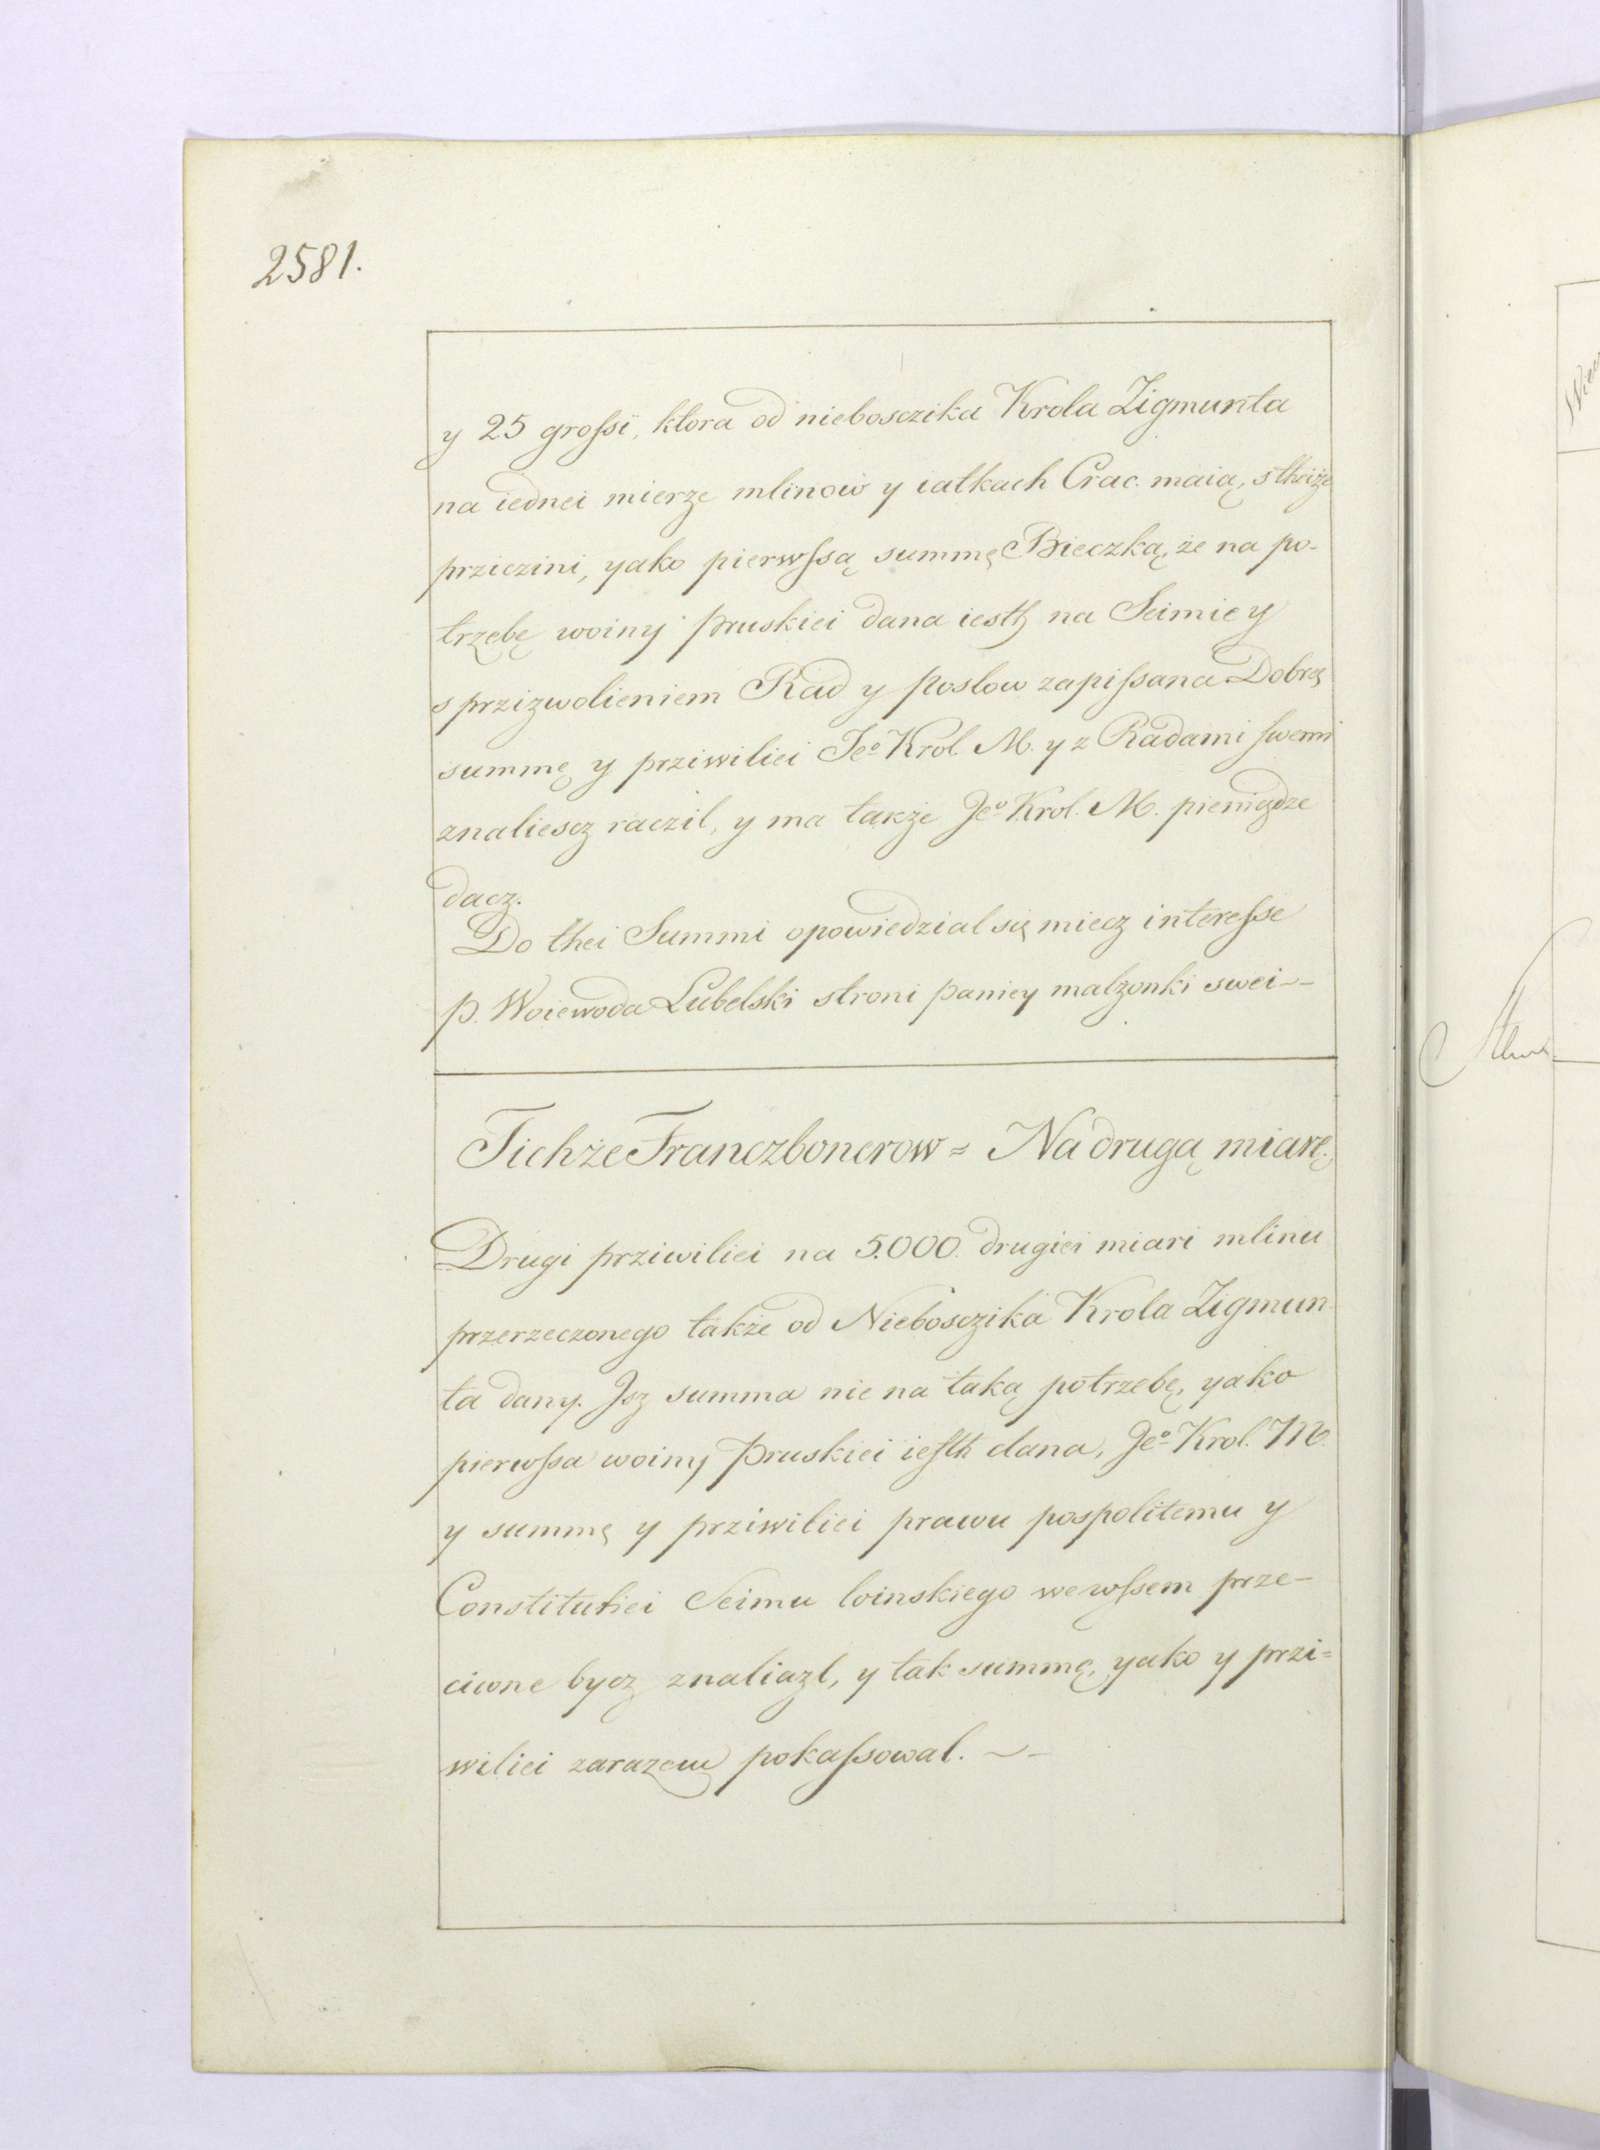 2581.
y 25 groſsi, ktora od niebosczika Krola Zigmunta
na iednei mierze mlinow y iatkach Crac. maią, s theiże
przieczini, yako pierwſsą summę Bieczką, że na po-
trzebę woiny pruskiei dana iesth na Seimie y
s przizwolieniem Rad y posłow zapiſsana Dobrą
summę y prziwiliei Jeo Krol. M. y z Radami swemi
znaliescz raczil, y ma także Jeo Krol. M. pieniądze
dacz.
Do thei Summi opowiedzial się miecz intereſse
p. Woiewoda Lubelski stroni paniey malzonki swei
Tichże Franczbonerow = Na drugą miarę.
Drugi prziwiliei na 5.000. drugiei miari mlinu
przerzeczonego także od Niebosczika Krola Zigmun-
ta dany. Jsz summa nie na taką potrzebę, yako
pierwſsa woiny Pruskiei ieſth dana, Jeo Krol. M.
y summę y prziwiliei prawu pospolitemu y
Constitutiei Seimu loinskiego we wſsem prze-
ciwne bycz znaliazl, y tak summę, yako y przi=
wiliei zarazem pokaſsowal.